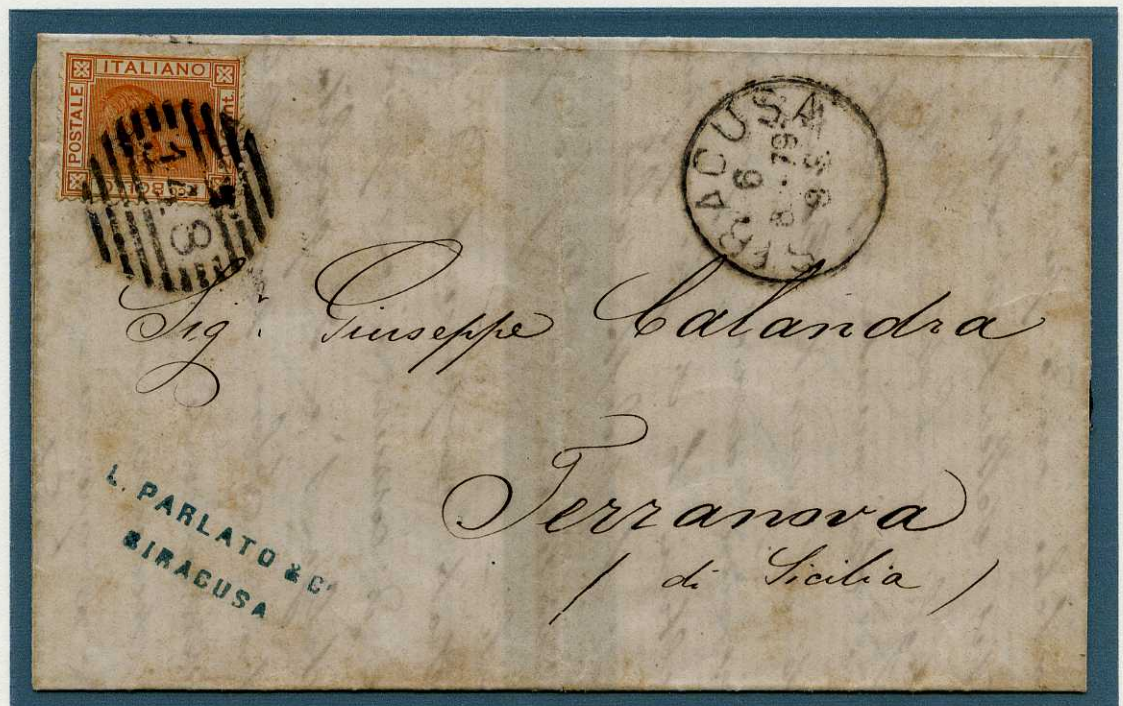 ITALIANO
POSTALE
SIRACUSA
6
8 - 79
Sig.r Giuseppe Calandra
Terranova
( di Sicilia )
L. PARLATO & C
SIRACUSA